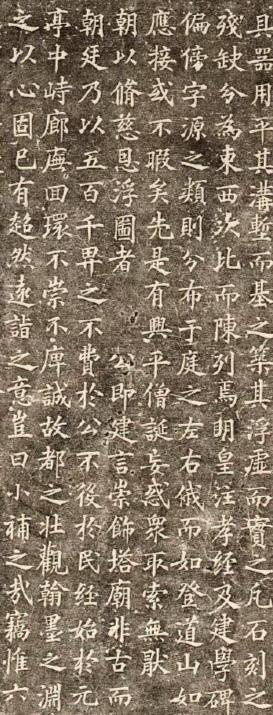 具器用平其溝塹而基之築其浮虛而實之凡石刻之
殘缺分為東西次比而陳列焉明皇注孝經及建學碑
偏傍字源之類則分布于庭之左右俄而如登道山如
應接或不暇矣先是有興平僧誕妄惑眾取索無猒
朝以脩慈恩浮圖者 公即建言崇飾塔廟非古而
朝廷乃以五百千畀之不費於公不役於民經始於元
亭中峙廊廡回環不崇不庳誠故都之壯觀翰墨之淵
之以心固已有超然遠詣之意豈曰小補之哉竊惟六